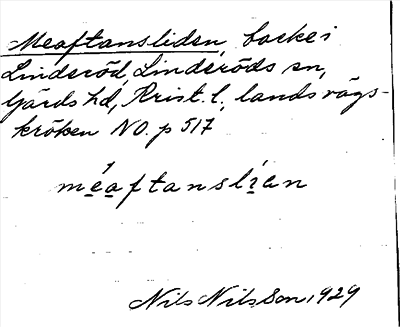 Meaftansliden, backe i
Linderöd, Linderöds sn,
Gärds hd, Krist. l., landsvägs-
kröken NO. p 517
méaftanslìan
Nils Nilsson, 1929